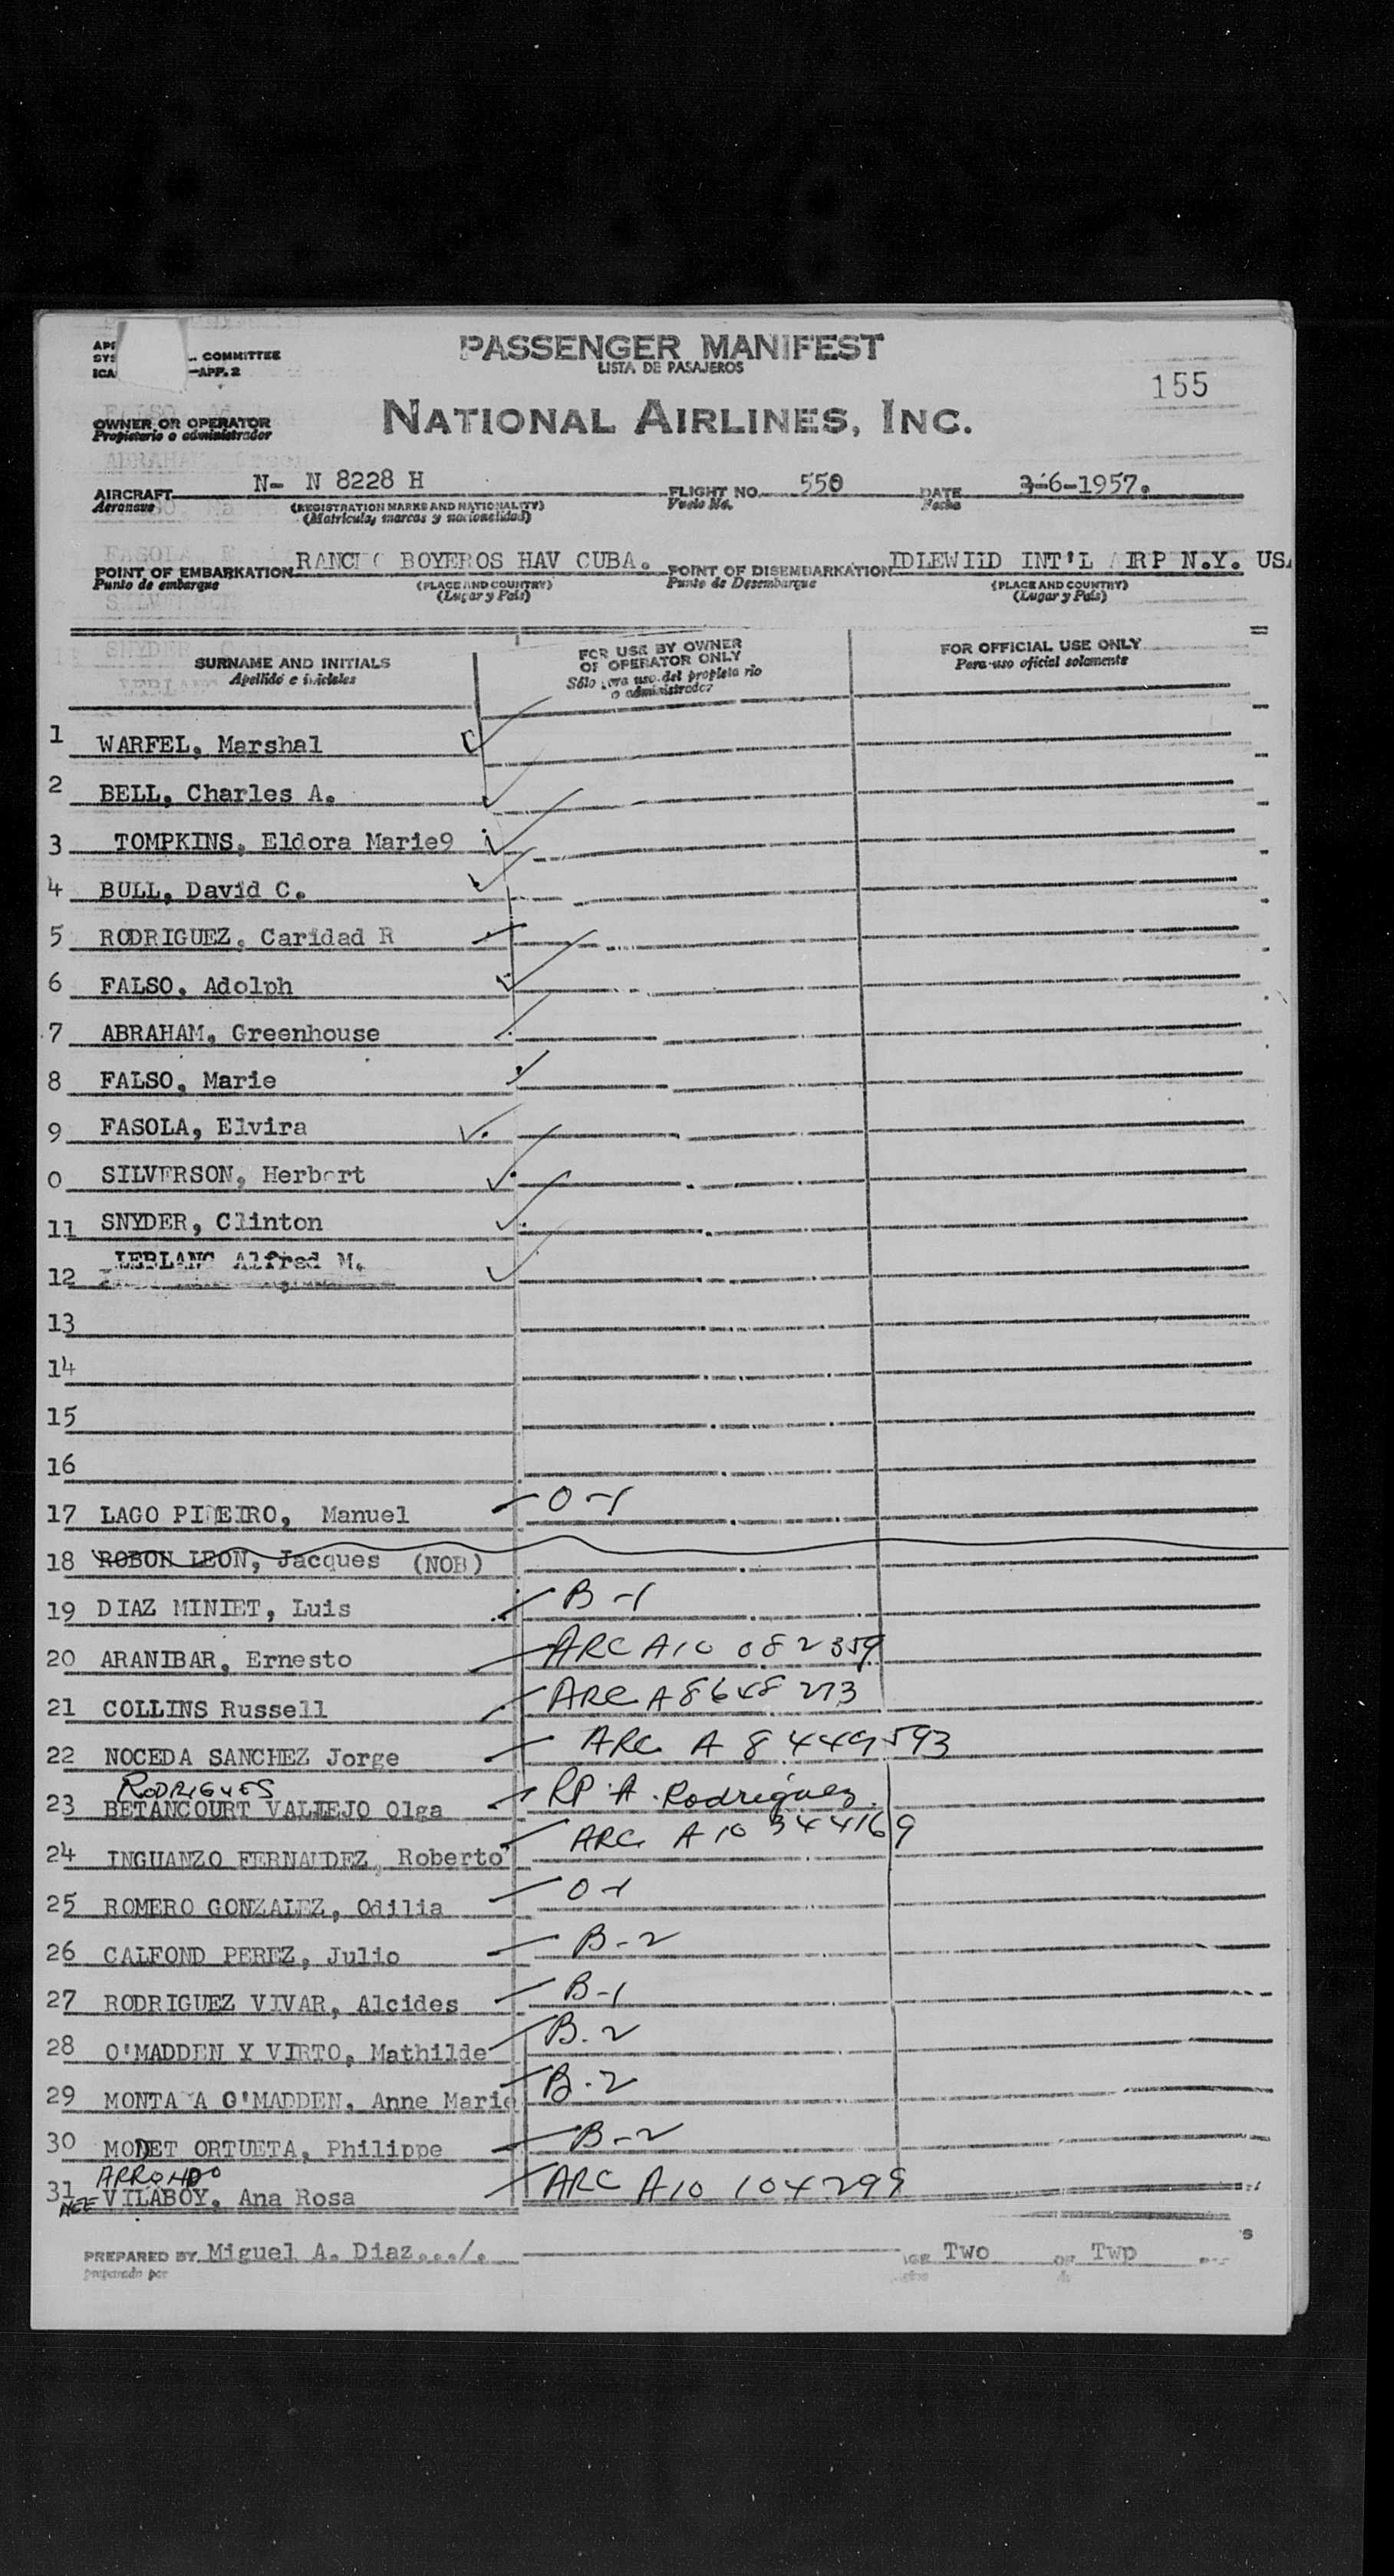 COMMITTEE
—APP. 2
PASSENGER MANIFEST
LISTA DE PASAJEROS
155
OWNER OR OPERATOR
Propietario o administrador
NATIONAL AIRLINES, INC.
AIRCRAFT N- N 8228 H FLIGHT NO. 550 DATE 3-6-1957.
Aeronave (REGISTRATION MARKS AND NATIONALITY) Vuelo No. Fecha
(Matricula, marcas y nacionalidad)
POINT OF EMBARKATION BOYEROS HAV CUBA. POINT OF DISEMBARKATION IDLEWIID INT'L RP N.Y. USA
Punto de embarque (PLACE AND COUNTRY) Punto de Desembarque (PLACE AND COUNTRY)
(Lugar y Pais) (Lugar y Pais)
SURNAME AND INITIALS FOR USE BY OWNER FOR OFFICIAL USE ONLY
Apellido e iniciales OF OPERATOR ONLY Para uso oficial solamente
Sólo para uso del propieta rio
o administrador
1 WARFEL, Marshal
2 BELL, Charles A.
3 TOMPKINS, Eldora Marie9
4 BULL, David C.
5 RODRIGUEZ, Caridad R
6 FALSO, Adolph
7 ABRAHAM, Greenhouse
8 FALSO, Marie
9 FASOLA, Elvira
0 SILVERSON, Herbert
11 SNYDER, Clinton
12 LEBLANC Alfred M.
13
14
15
16
17 LAGO PINEIRO, Manuel O-1
18 ROBON LEON, Jacques (NOB)
19 DIAZ MINIET, Luis B-1
20 ARANIBAR, Ernesto ARC A10 082 359
21 COLLINS Russell ARC A8648 273
22 NOCEDA SANCHEZ Jorge ARC A 8 449 593
RODRIGUES
23 BETANCOURT VALLEJO Olga RP A. Rodriguez
24 INGUANZO FERNANDEZ, Roberto ARC A10 344169
25 ROMERO GONZALEZ, Odilia O-1
26 CALFOND PEREZ, Julio B-2
27 RODRIGUEZ VIVAR, Alcides B-1
28 O'MADDEN Y VIRTO, Mathilde B-2
29 MONTA A O'MADDEN, Anne Marie B-2
30 MODET ORTUETA, Philippe B-2
ARRONDO
31 NEE VILABOY, Ana Rosa ARC A10 104 299
PREPARED BY Miguel A. Diaz.../. Two OF Twp
preparado por